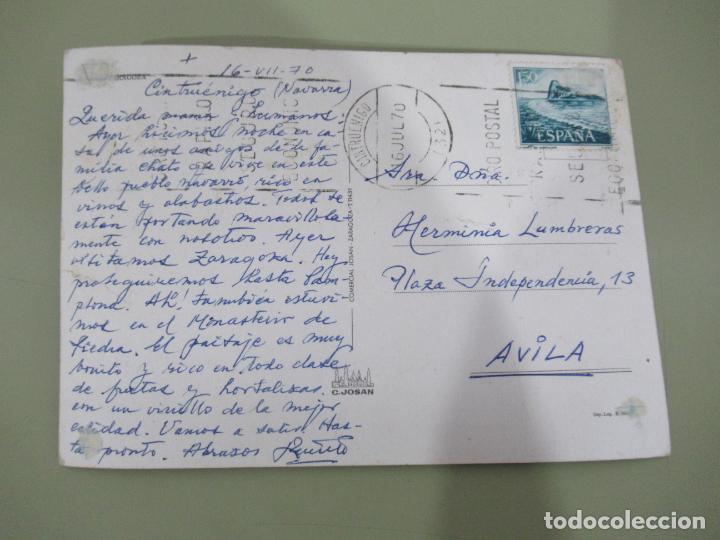 +
16-VII-70
Cintruénigo (Navarra)
Querida mamá y hermanos
Ayer hicimos noche en ca
sa de unos amigos de la fa
milia Chato que vive en este
bello pueblo navarro, rico en
vinos y alabastros. Todos se
están portando maravillosa
mente con nosotros. Ayer
visitamos Zaragoza. Hoy
proseguiremos hasta Pam
plona. Ah! también estuvi
mos en el Monasterio de
Piedra. El paisaje es muy
bonito y rico en toda clase
de frutas y hortalizas.
con un vinillo de la mejor
calidad. Vamos a salir. Has-
ta pronto. Abrazos
COMERCIAL JOSAN - ZARAGOZA
C. JOSAN
CINTRUENIGO
16 JUL 70
POSTAL
1'50
ESPAÑA
Sra Dña.
Herminia Lumbreras
Plaza Independencia, 13
AVILA
Dep. Leg. B.
todocoleccion